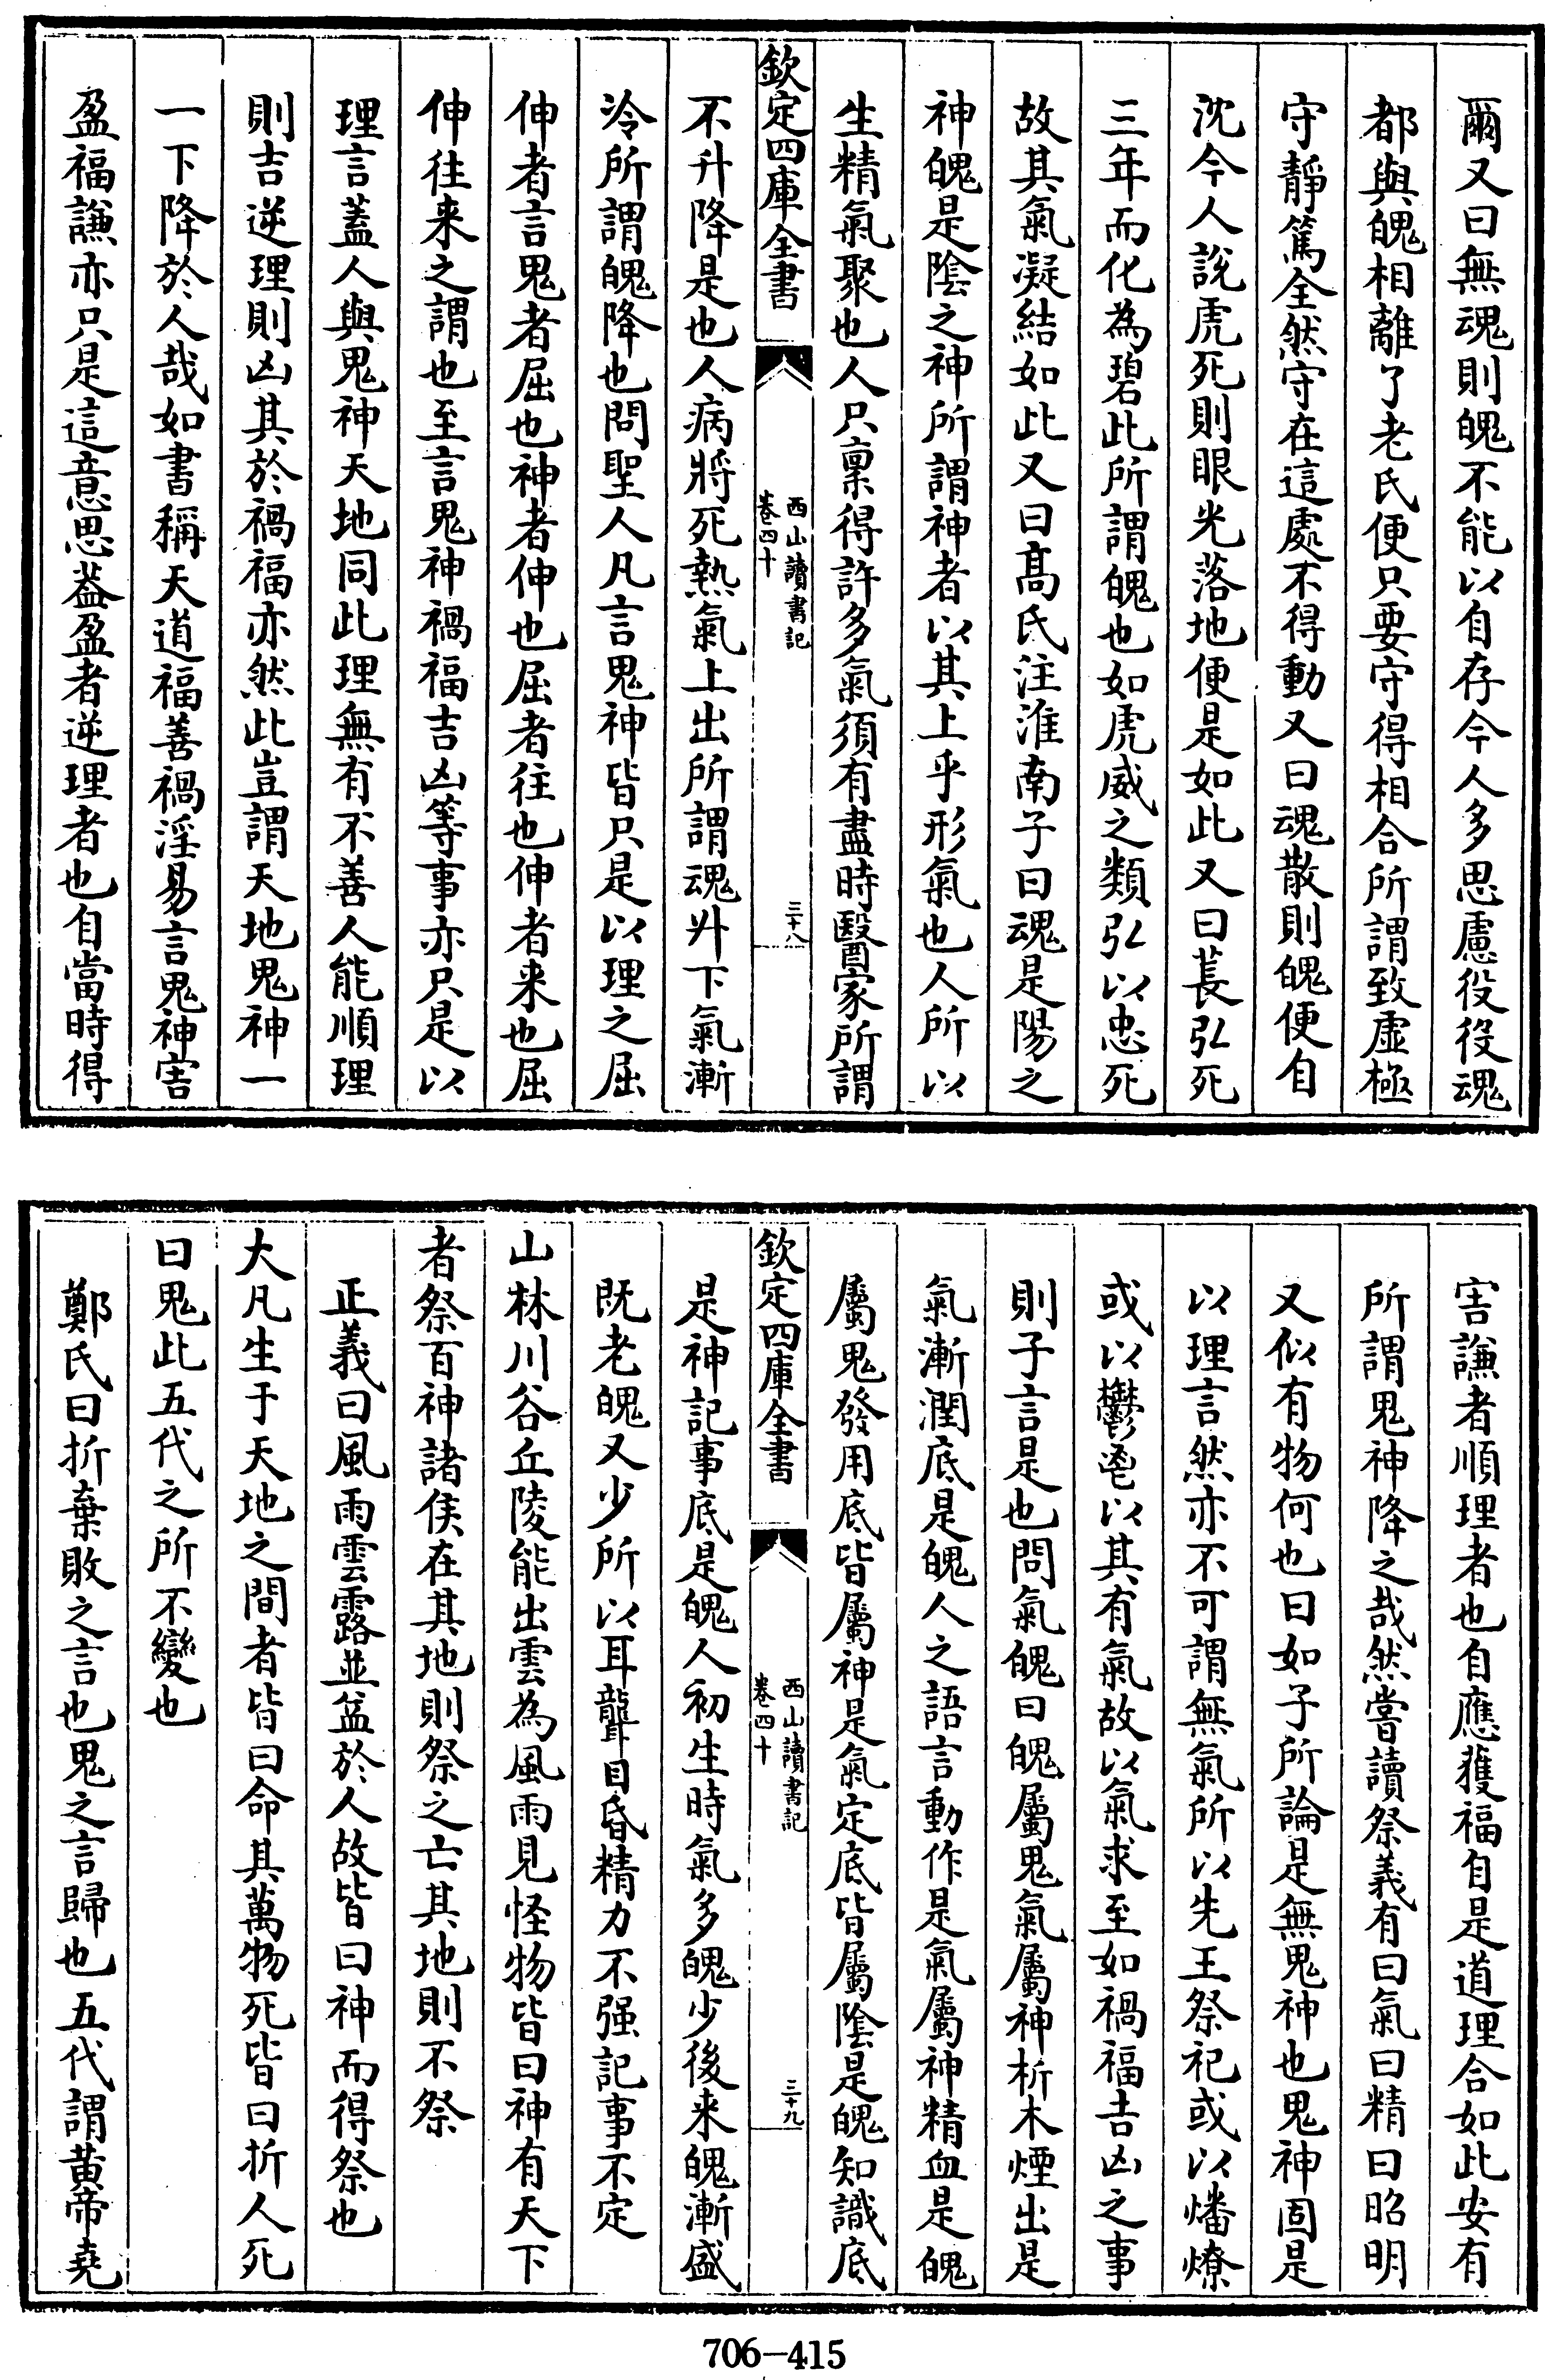 爾又曰無魂則魄不能以自存今人多思慮役役魂
都與魄相離了老氏便只要守得相合所謂致虛極
守靜篤全然守在這處不得動又曰魂散則魄便自
沈今人說虎死則眼光落地便是如此又曰萇弘死
三年而化為碧此所謂魄也如虎威之類弘以忠死
故其氣凝結如此又曰高氏注淮南子曰魂是陽之
神魄是陰之神所謂神者以其上乎形氣也人所以
生精氣聚也人只稟得許多氣須有盡時醫家所謂
欽定四庫全書
西山讀書記
卷四十
三十八
不升降是也人病將死熱氣上出所謂魂升下氣漸
冷所謂魄降也問聖人凡言鬼神皆只是以理之屈
伸者言鬼者屈也神者伸也屈者往也伸者来也屈
伸往来之謂也至言鬼神禍福吉凶等事亦只是以
理言蓋人與鬼神天地同此理無有不善人能順理
則吉逆理則凶其於禍福亦然此豈謂天地鬼神一
一下降於人哉如書稱天道福善禍淫易言鬼神害
盈福謙亦只是這意思葢盈者逆理者也自當時得
害謙者順理者也自應獲福自是道理合如此安有
所謂鬼神降之哉然嘗讀祭義有曰氣曰精曰昭明
又似有物何也曰如子所論是無鬼神也鬼神固是
以理言然亦不可謂無氣所以先王祭祀或以燔燎
或以鬱鬯以其有氣故以氣求至如禍福吉凶之事
則子言是也問氣魄曰魄屬鬼氣屬神析木煙出是
氣漸潤底是魄人之語言動作是氣屬神精血是魄
屬鬼發用底皆屬神是氣定底皆屬陰是魄知識底
欽定四庫全書
西山讀書記
卷四十
三十九
是神記事底是魄人初生時氣多魄少後来魄漸盛
既老魄又少所以耳聾目昏精力不强記事不定
山林川谷丘陵能出雲為風雨見怪物皆曰神有天下
者祭百神諸侯在其地則祭之亡其地則不祭
正義曰風雨雲露並益於人故皆曰神而得祭也
大凡生于天地之間者皆曰命其萬物死皆曰折人死
曰鬼此五代之所不變也
鄭氏曰折棄敗之言也鬼之言歸也五代謂黄帝堯
706-415